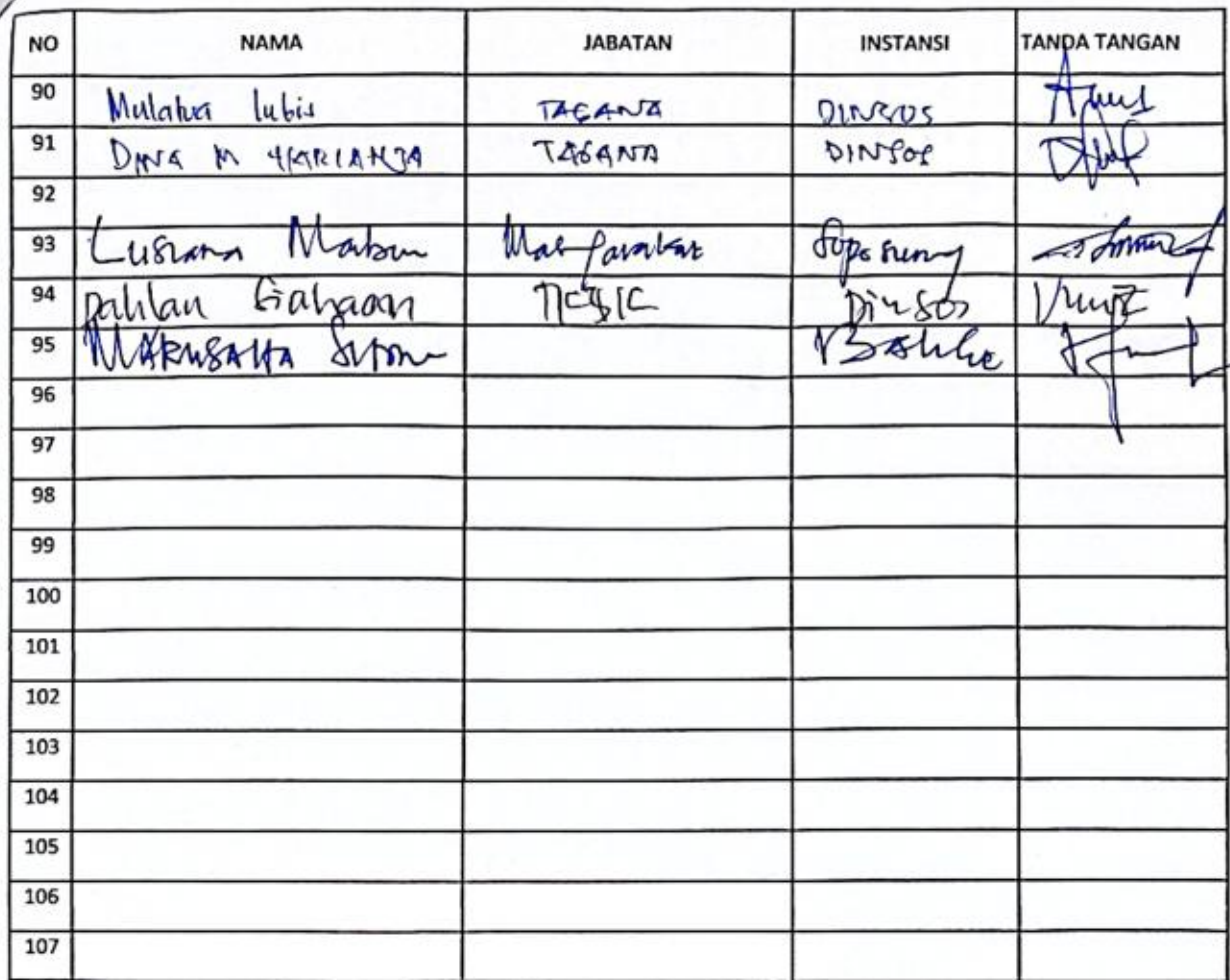 NO NAMA JABATAN INSTANSI TANDA TANGAN
90 Mulatua lubis TAGANA DINSOS
91 DINA M HARIANJA TAGANA DINSOS
92
93 Lusiana Masyarakat Soposurung
94 Dahlan Siahaan Dinsos
95 MARUSAHA
96
97
98
99
100
101
102
103
104
105
106
107